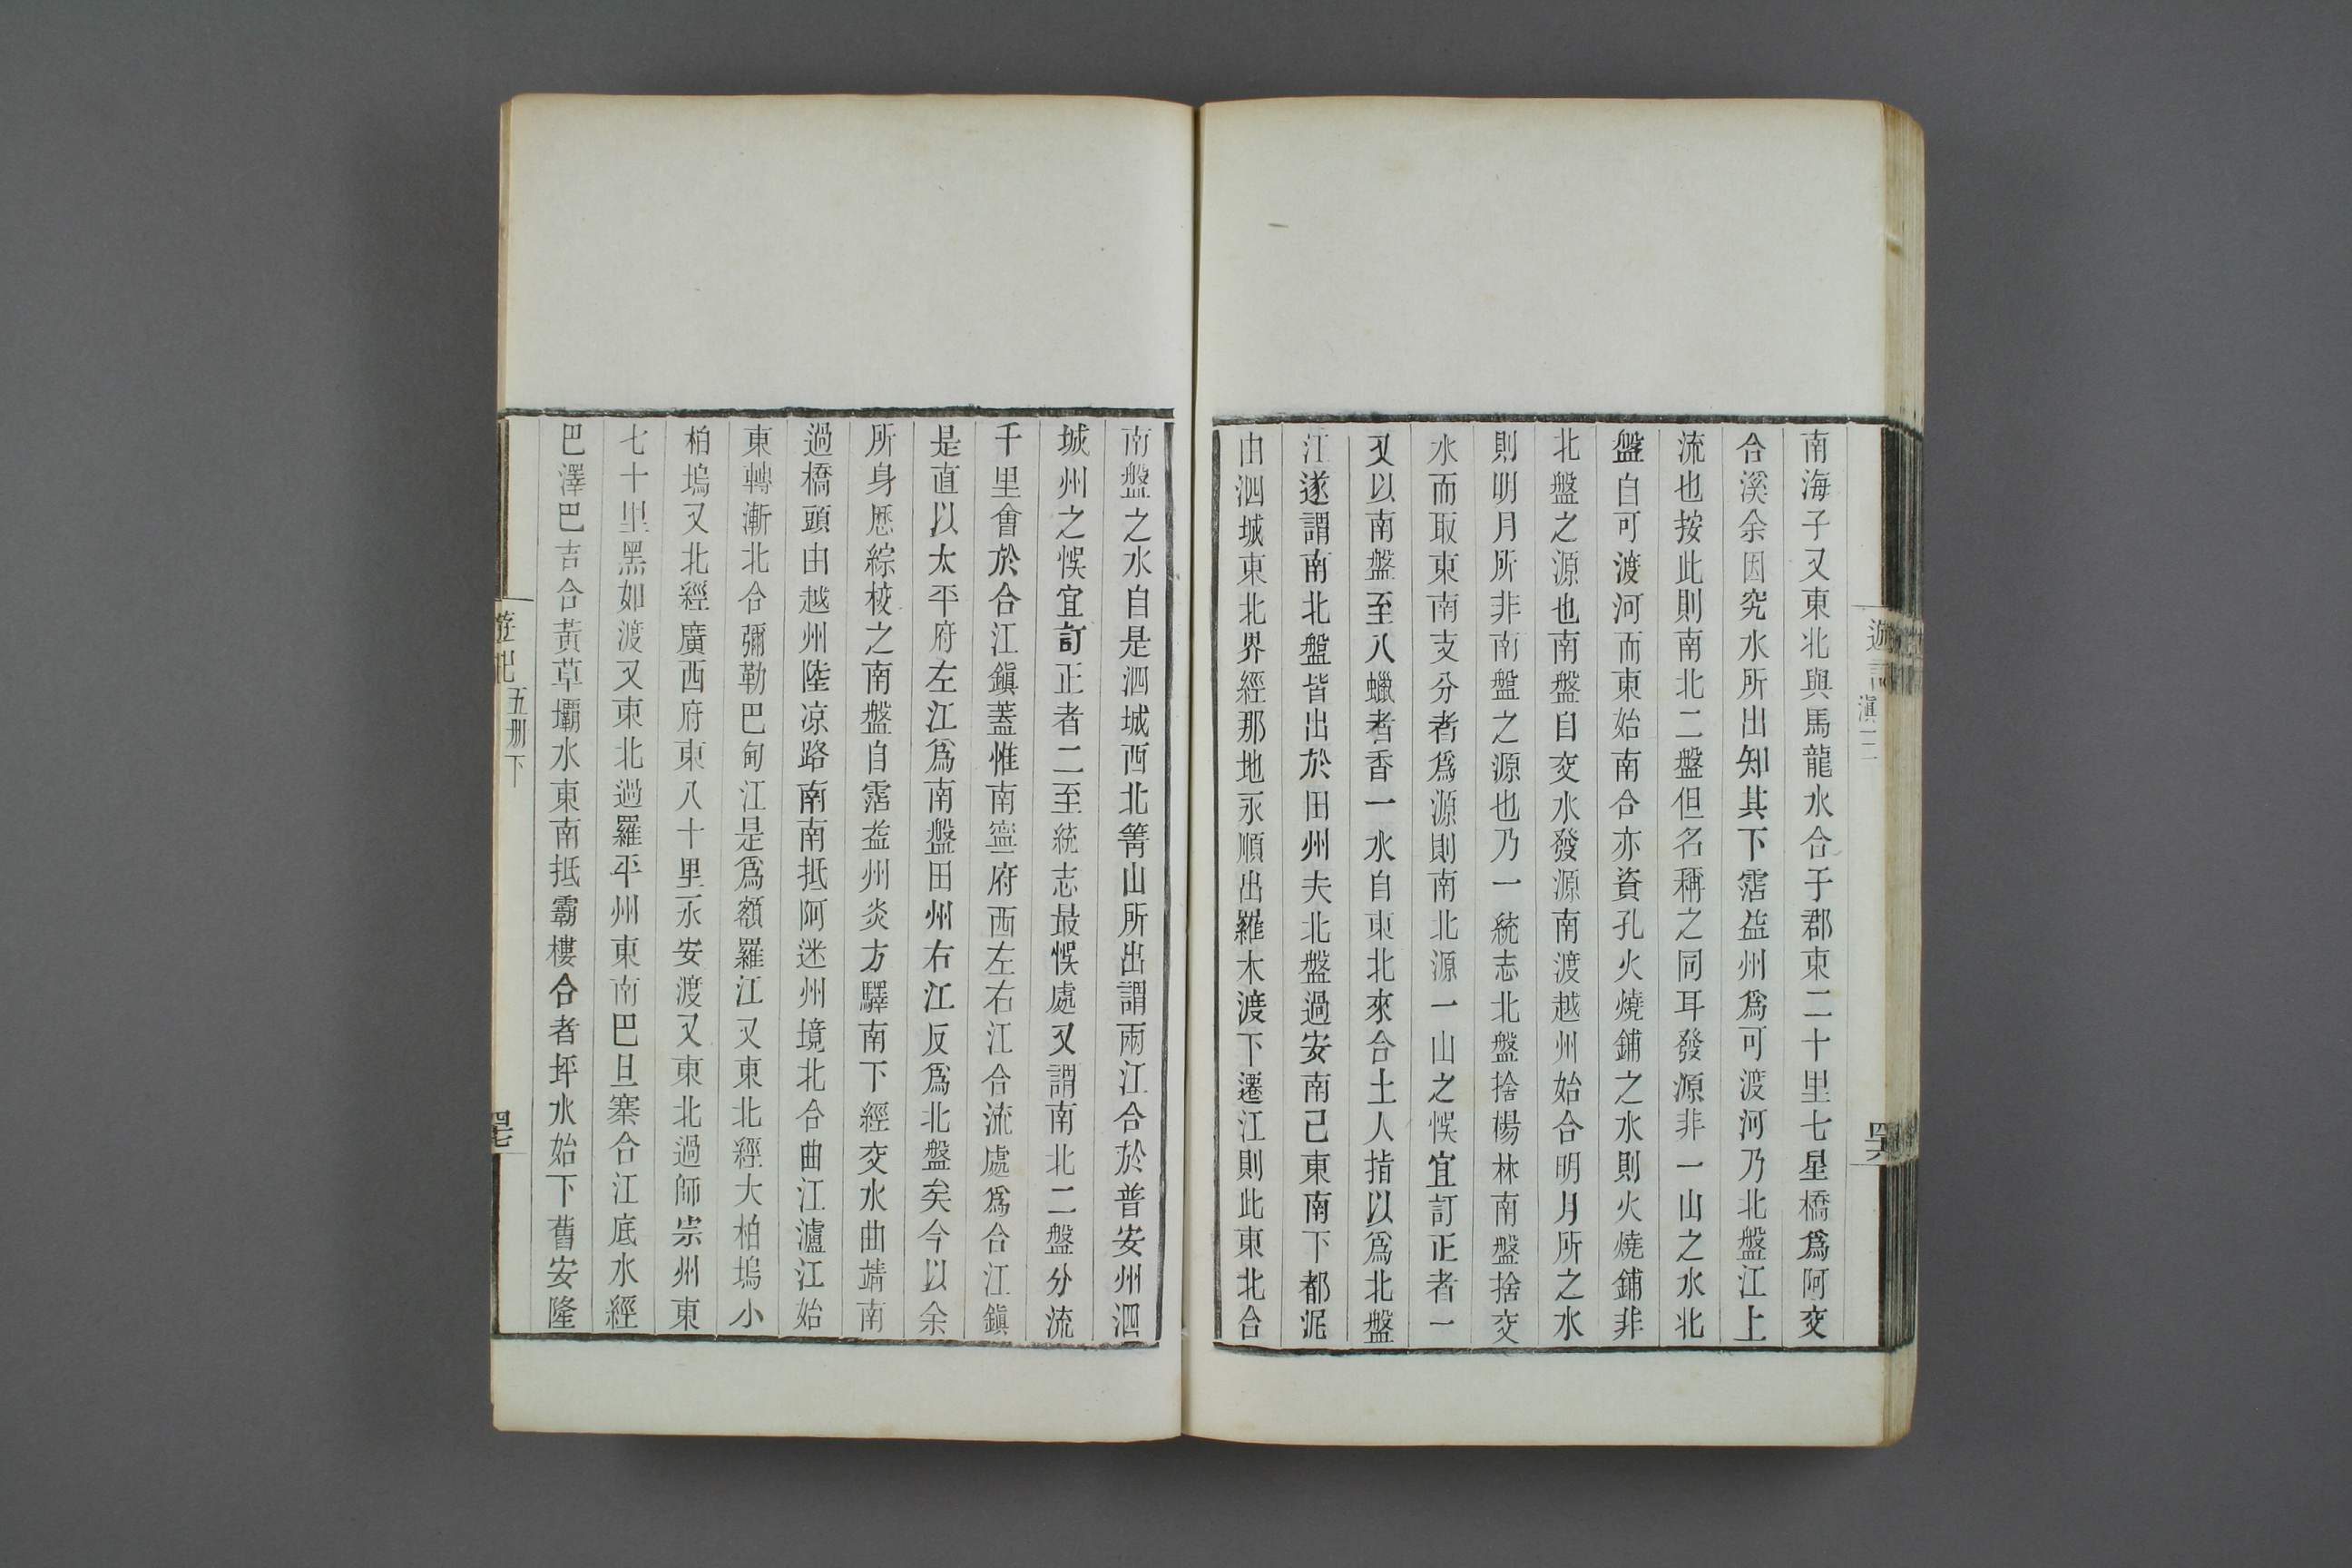 南海子又東北與馬龍水合于郡東二十里七星橋爲阿交
合溪余因究水所出知其下霑益州爲可渡河乃北盤江上
流也按此則南北二盤但名稱之同耳發源非一山之水北
盤自可渡河而東始南合亦資孔火燒鋪之水則火燒鋪非
北盤之源也南盤自交水發源南渡越州始合明月所之水
則明月所非南盤之源也乃一統志北盤捨楊林南盤捨交
水而取東南支分者爲源則南北源一山之悮宜訂正者一
又以南盤至八蠟者香一水自東北來合土人指以爲北盤
江遂謂南北盤皆出於田州夫北盤過安南已東南下都泥
由泗城東北界經那地永順出羅木渡下遷江則此東北合
南盤之水自是泗城西北箐山所出謂兩江合於普安州泗
城州之悮宜訂正者二至統志最悮處又謂南北二盤分流
千里會於合江鎭蓋惟南寧府西左右江合流處爲合江鎭
是直以太平府左江爲南盤田州右江反爲北盤矣今以余
所身歷綜校之南盤自霑益州炎方驛南下經交水曲靖南
過橋頭由越州陸凉路南南抵阿迷州境北合曲江瀘江始
東轉漸北合彌勒巴甸江是爲額羅江又東北經大柏塢小
柏塢又北經廣西府東八十里永安渡又東北過師宗州東
七十里黑如渡又東北過羅平州東南巴旦寨合江底水經
巴澤巴吉合黃草壩水東南抵霸樓合者坪水始下舊安隆
遊記 五册下
四七